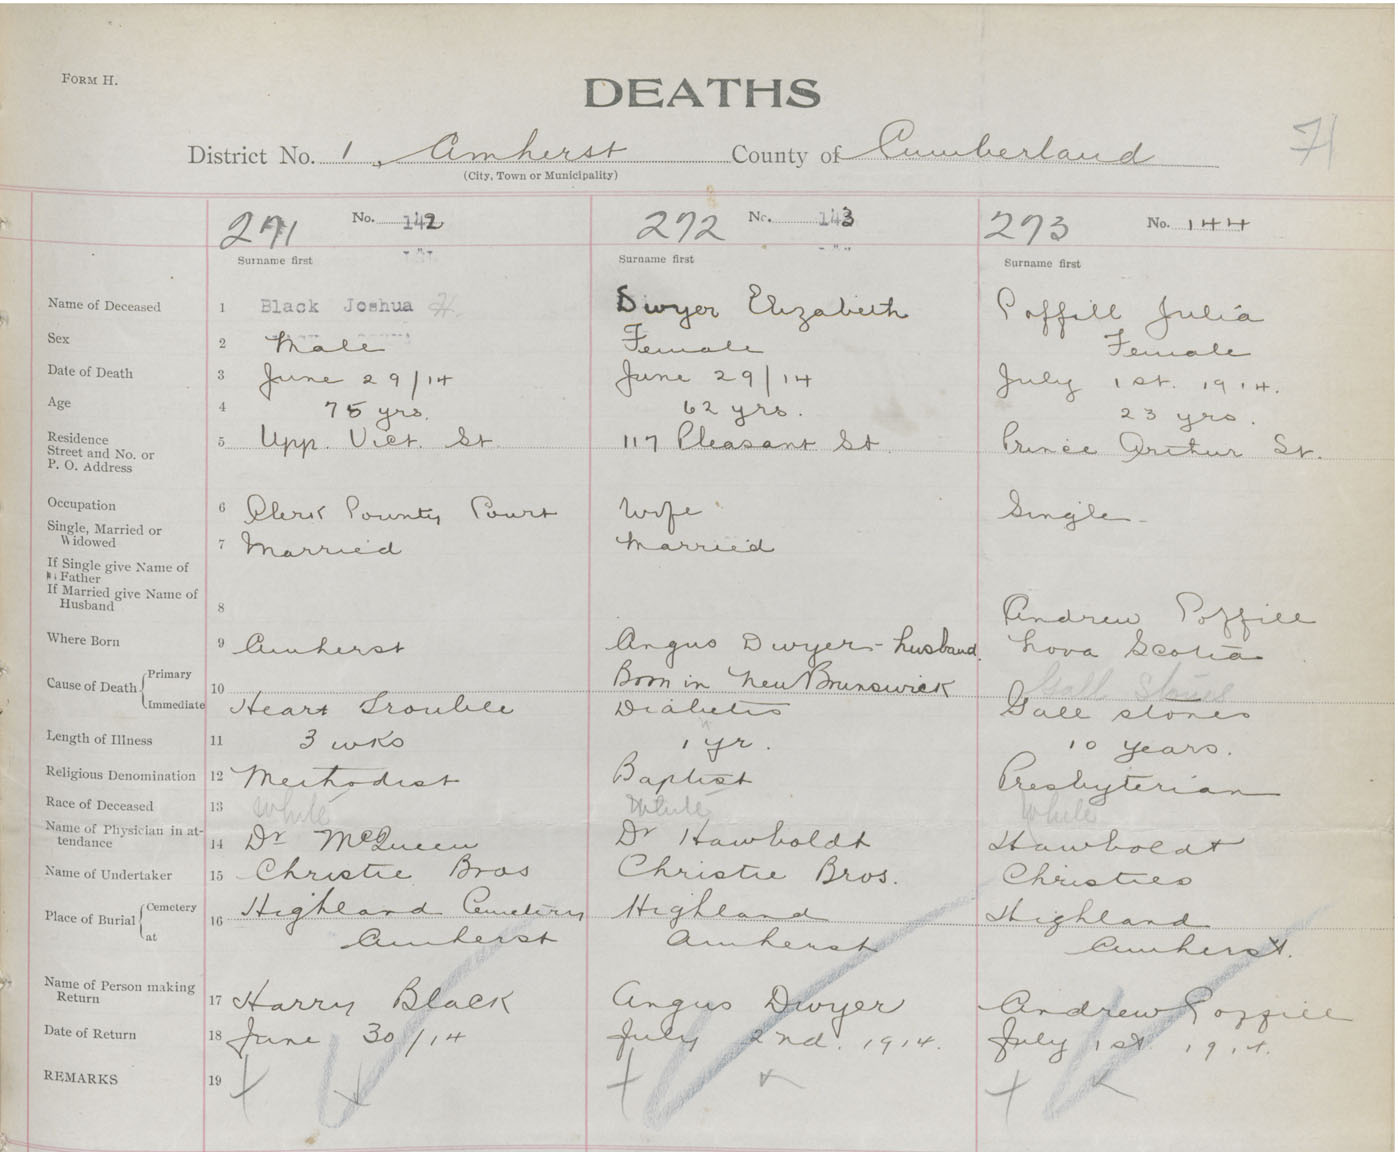 FORM H.
DEATHS
71
District No. 1, Amherst County of Cumberland
(City, Town or Municipality)
271 No. 142
272 No. 143
273 No. 144
Surname first
Surname first
Surname first
Name of Deceased 1 Black Joshua H. Dwyer Elizabeth Poffill Julia
Sex 2 Male Female Female
Date of Death 3 June 29/14 June 29/14 July 1st. 1914.
Age 4 75 yrs. 62 yrs. 23 yrs.
Residence 5 Upp. Vict. St. 117 Pleasant St. Prince Arthur St.
Street and No. or
P. O. Address
Occupation 6 Clerk County Court Wife Single
Single, Married or
Widowed 7 Married Married
If Single give Name of
Father
If Married give Name of
Husband 8 Andrew Poffill
Where Born 9 Amherst Angus Dwyer - husband. Nova Scotia
Cause of Death Primary 10 Born in New Brunswick Gall Stones
Immediate Heart Trouble Diabetis Gall stones
Length of Illness 11 3 wks 1 yr. 10 years.
Religious Denomination 12 Methodist Baptist Presbyterian
Race of Deceased 13 White White White
Name of Physician in at-
tendance 14 Dr McQueen Dr Hawboldt Hawboldt
Name of Undertaker 15 Christie Bros Christie Bros. Christies
Place of Burial Cemetery 16 Highland Cemetery Highland Highland
at Amherst Amherst Amherst.
Name of Person making
Return 17 Harry Black Angus Dwyer Andrew Poffill
Date of Return 18 June 30/14 July 2nd. 1914. July 1st. 1914.
REMARKS 19